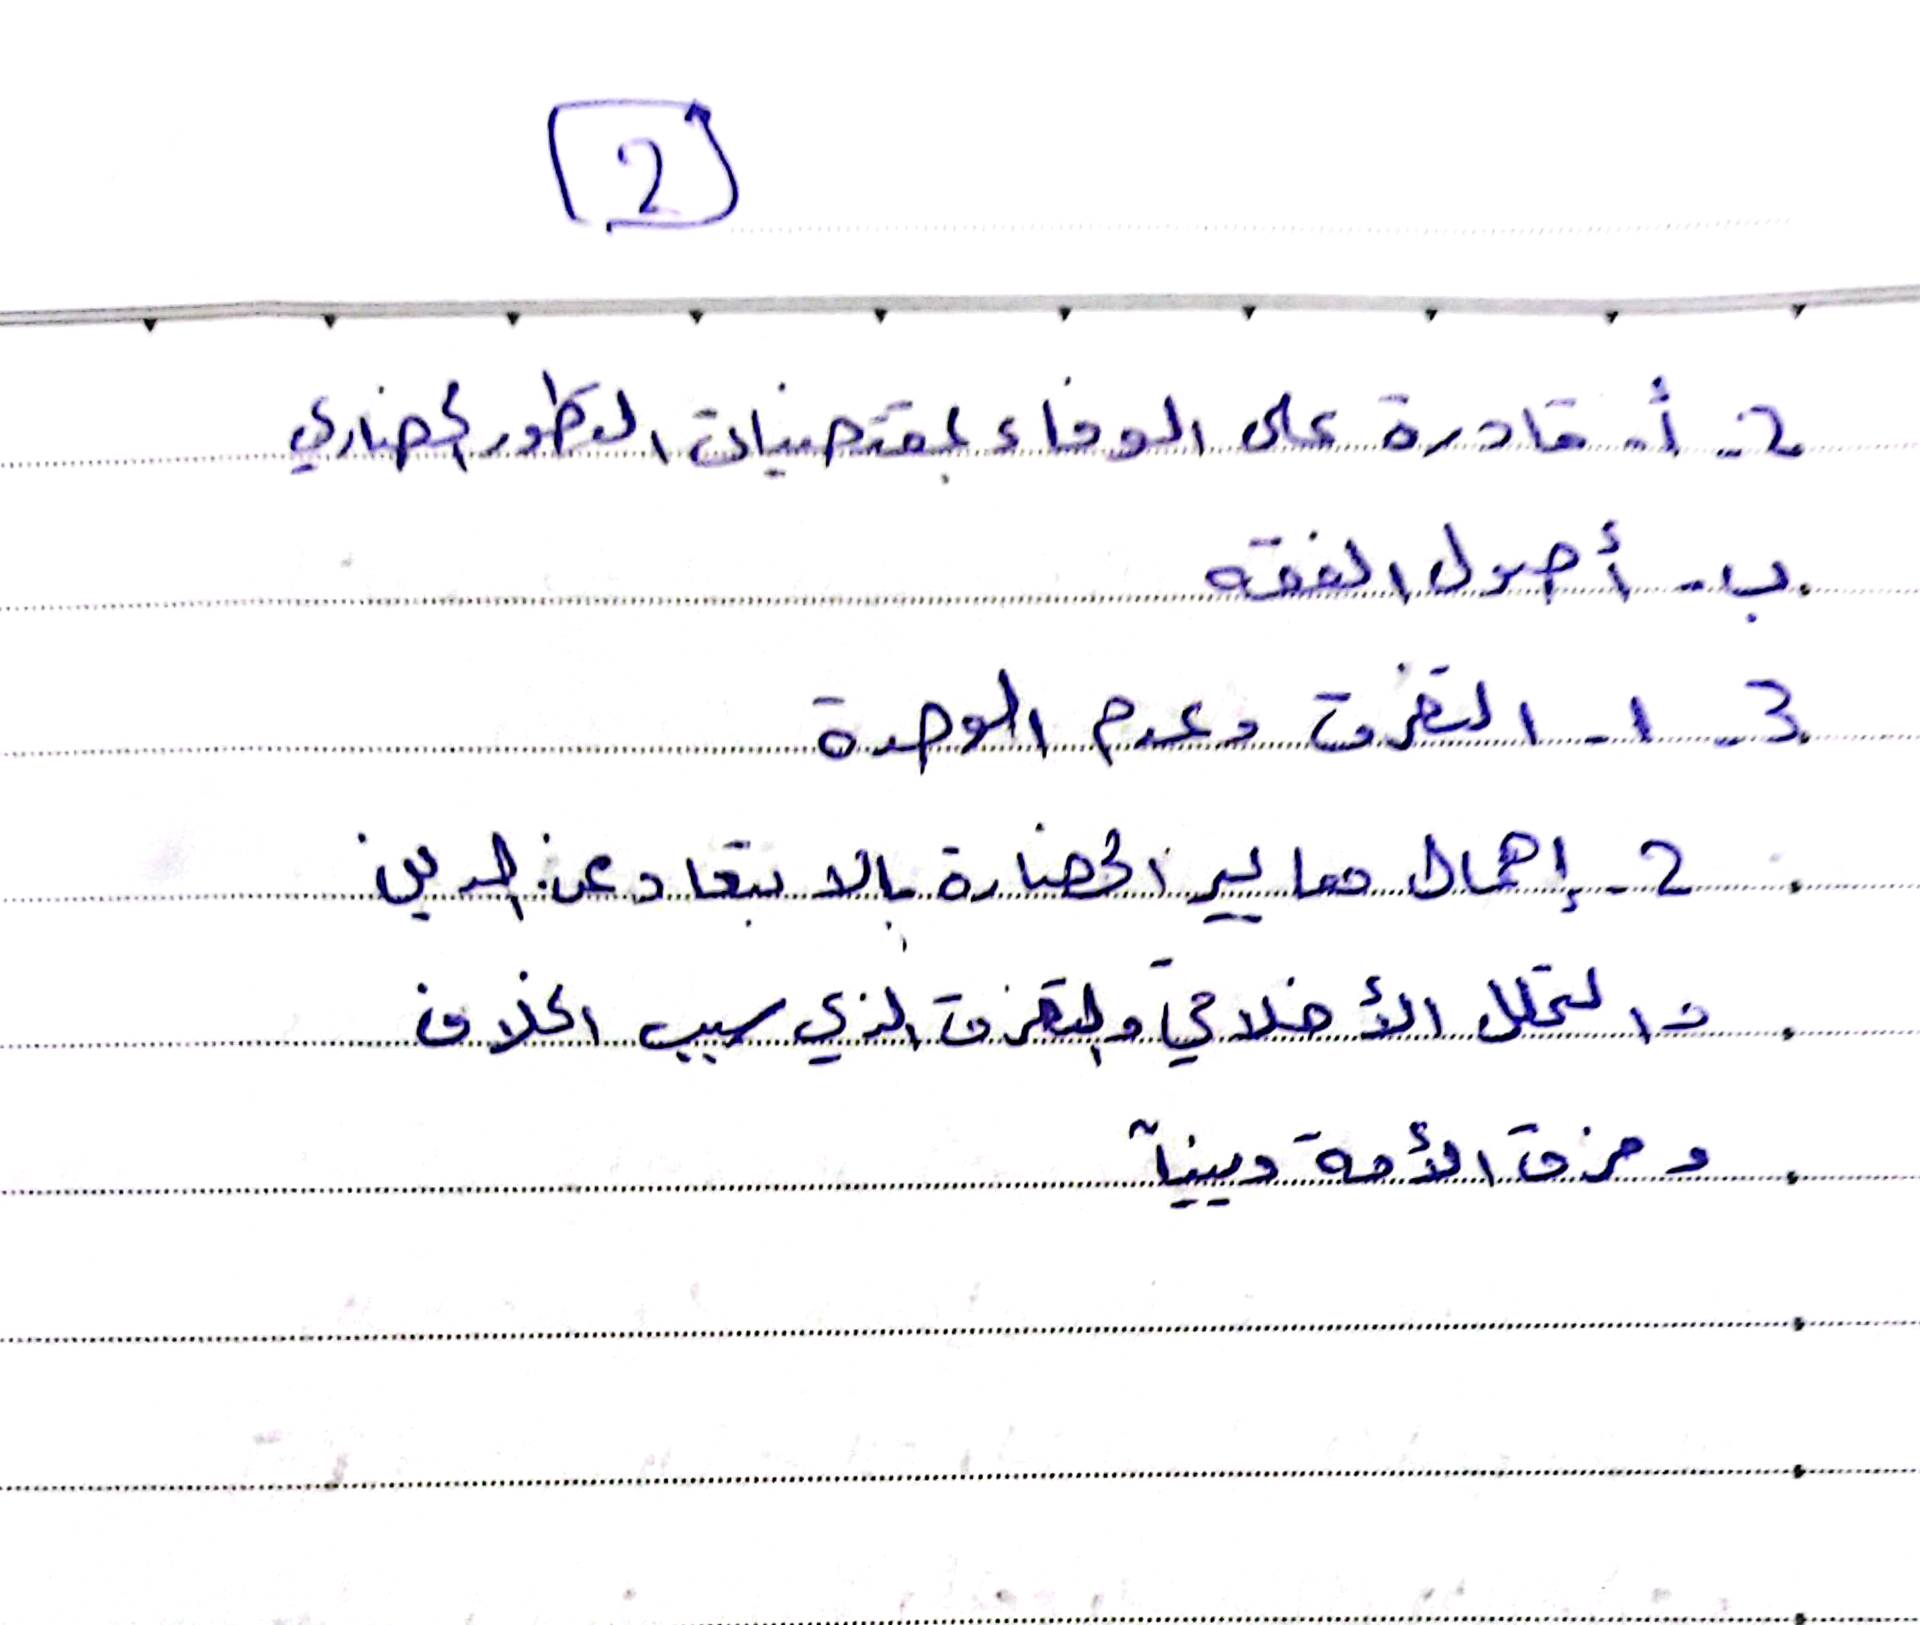 2
2- أ- قادرة على الوفاء بمقتضيات التطور الحضاري
ب- أصول الفقه
3- 1- التفرق وعدم الوحدة
2- إهمال معايير الحضارة بالابتعاد عن الدين
والتحلل الأخلاقي والتفرق الذي سبب الخلاف
ومزق الأمة دينياً